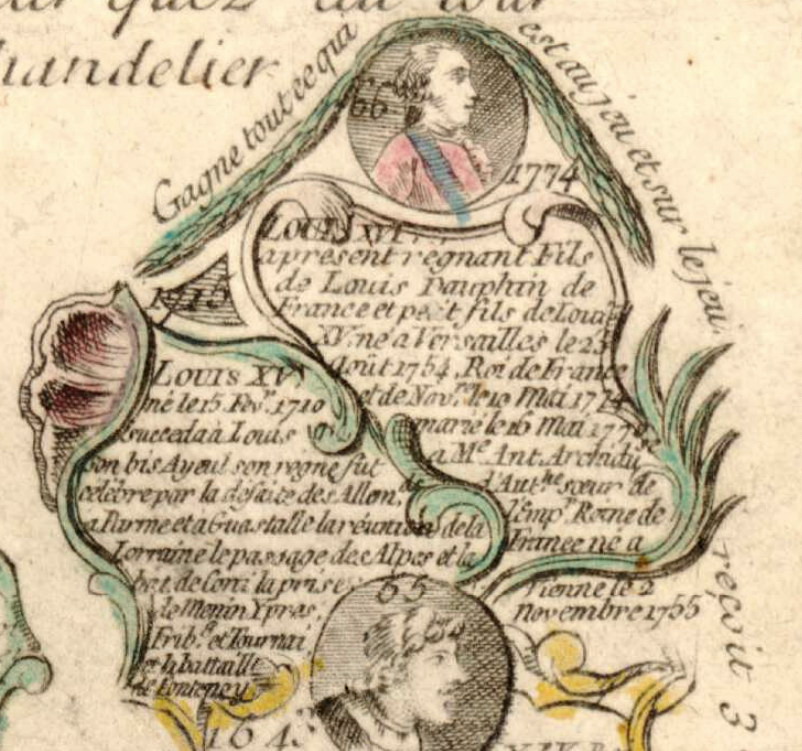 chandelier
Gagne tout ce qui
est au jeu et sur le jeu.
66
1774
LOUIS XVI
apresent regnant Fils
de Louis Dauphin de
France et petit fils de Louis
XV. né a Versailles le 23
Août 1754. Roi de France
et de Nav.re le 10 Mai 1774
marié le 16 Mai 1770
a M.e Ant. Archidu
d'Aut.he sœur de
l'Emp.r Reine de
France né a
Vienne le 2
Novembre 1755
1715
LOUIS XV
né le 15 Fev.r 1710
succeda à Louis
son bis Ayeul son regne fut
célébre par la défaite des Allem.
a Parme et a Guastalle la réunion de la
Lorraine le passage des Alpes et la
bat. de Coni la prise
de Menin Ypres,
Frib.g et Tournai
et la battaille
de Fonteney
65
reçoit 3
164